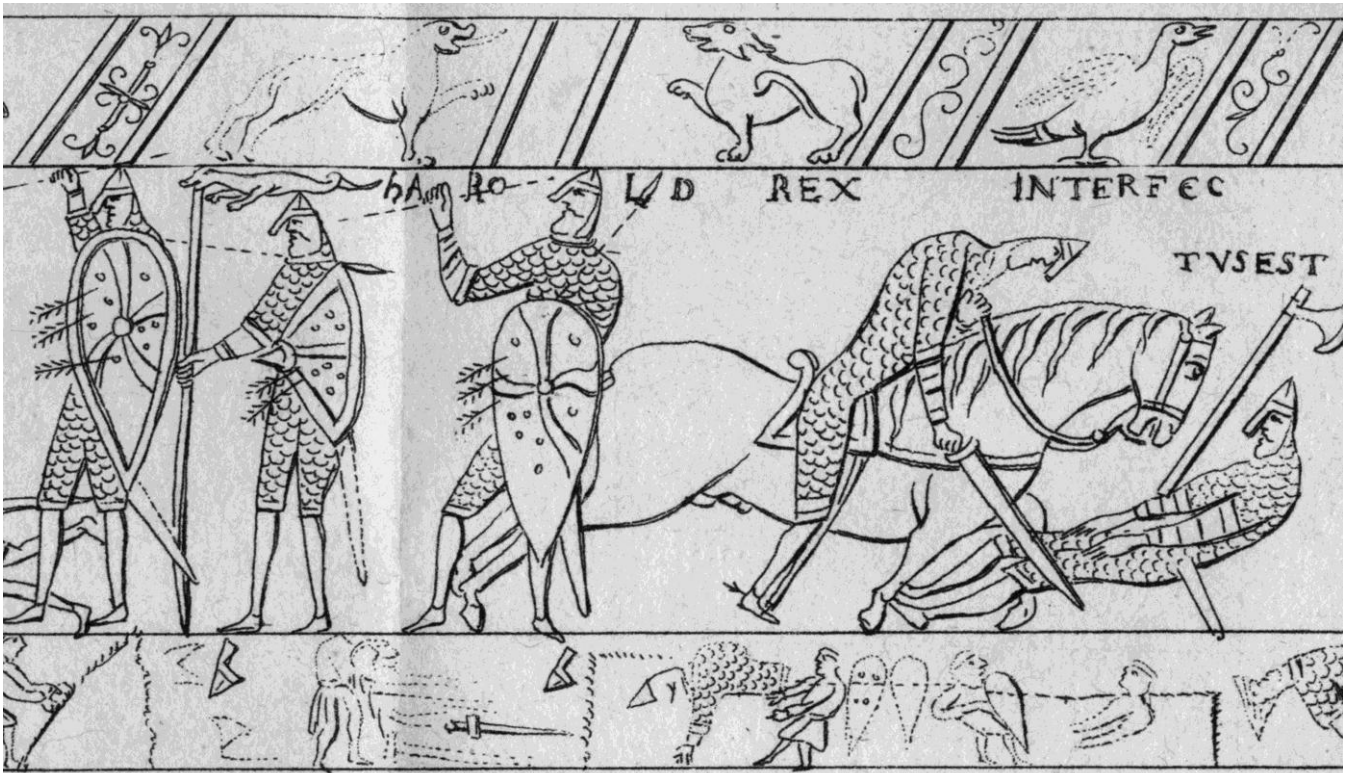 hARO L D REX INTERFEC
TVSEST